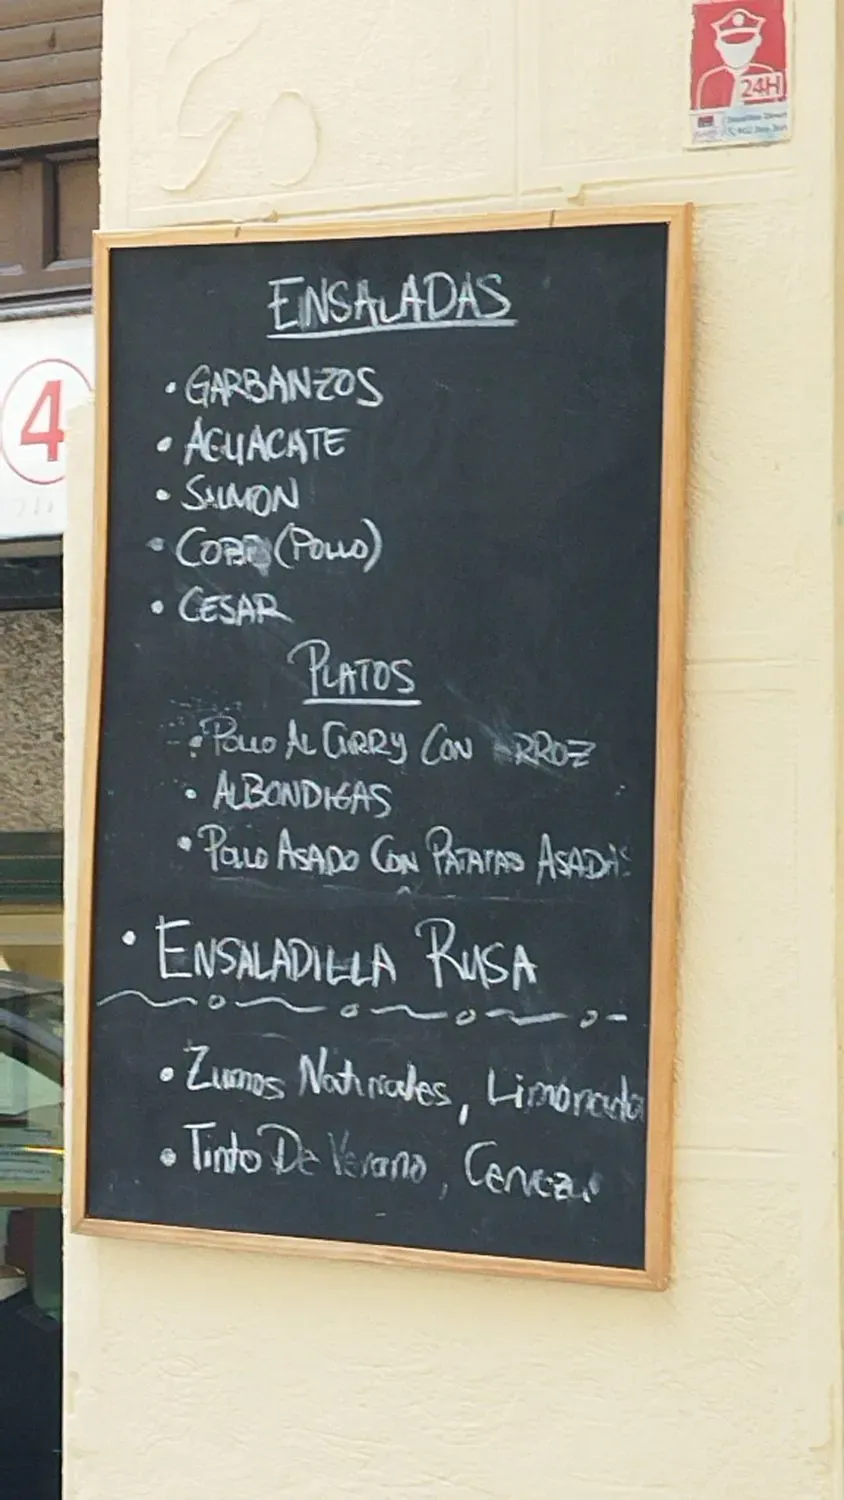 24H
4
ENSALADAS
• GARBANZOS
• AGUACATE
• SALMON
• COBB (POLLO)
• CESAR
PLATOS
• POLLO AL CURRY CON ARROZ
• ALBONDIGAS
• POLLO ASADO CON PATATAS ASADAS
• ENSALADILLA RUSA
• Zumos Naturales, Limonada
• Tinto De Verano, Cerveza